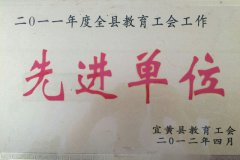 二〇一一年度全县教育工会工作
先进单位
宜黄县教育工会
二〇一二年四月